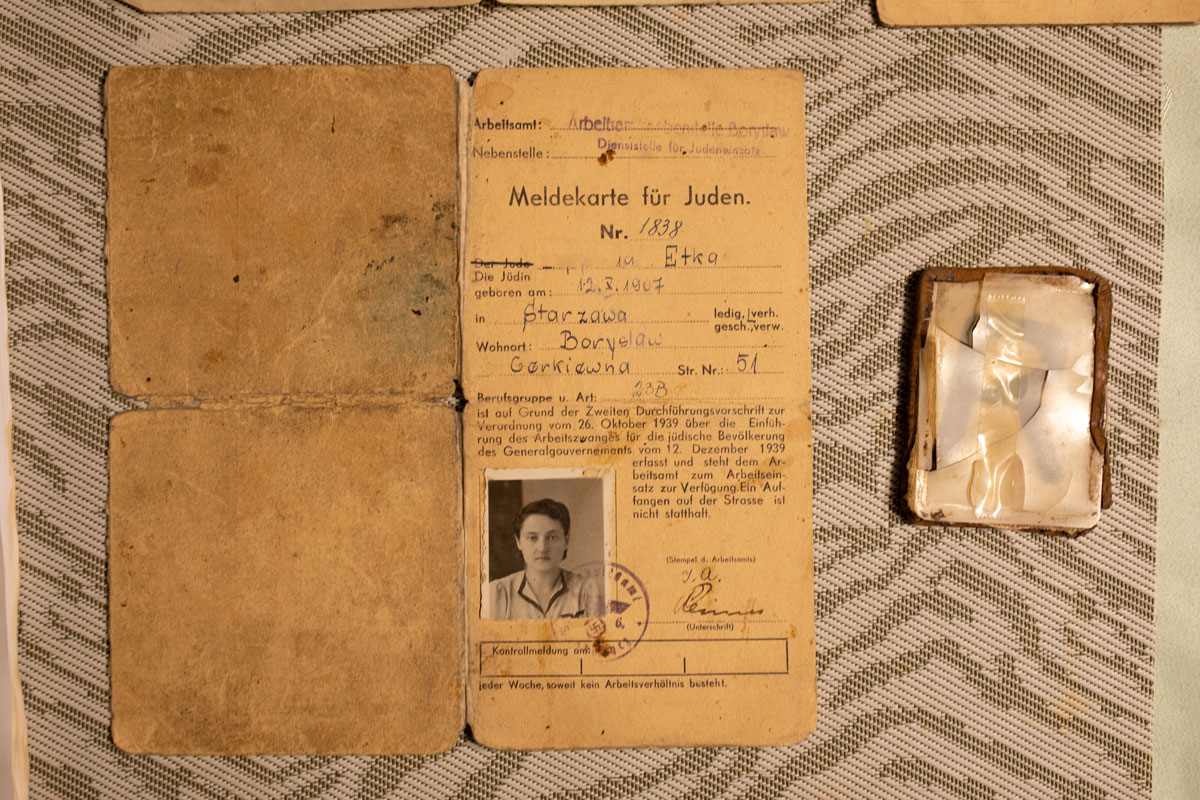 Arbeitsamt:
Nebenstelle: Dienststelle für Judeneinsatz
Meldekarte für Juden.
Nr. 1838
Der Jude Etka
Die Jüdin
geboren am: 12. X. 1907
in Starzawa ledig, verh.
gesch., verw.
Wohnort: Borysław
Gorkiewna Str. Nr.: 51
Berufsgruppe u. Art: 23B
ist auf Grund der Zweiten Durchführungsvorschrift zur
Verordnung vom 26. Oktober 1939 über die Einfüh-
rung des Arbeitszwanges für die jüdische Bevölkerung
des Generalgouvernements vom 12. Dezember 1939
erfasst und steht dem Ar-
beitsamt zum Arbeitsein-
satz zur Verfügung. Ein Auf-
fangen auf der Strasse ist
nicht statthaft.
(Stempel d. Arbeitsamts)
I. A.
(Unterschrift)
Kontrollmeldung am:
jeder Woche, soweit kein Arbeitsverhältnis besteht.